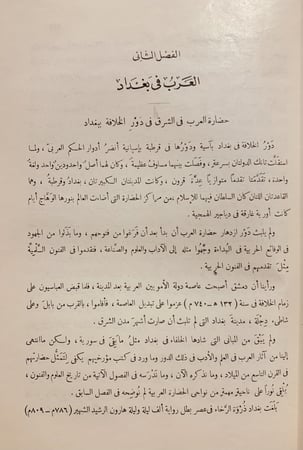 الفصل الثانى
العَرَبُ فى بَغْدَاد
حضارة العرب فى الشرق فى دَوْر الخلافة ببغداد
دَوْرُ الخلافة فى بغداد بآسية ودَوْرُها فى قرطبة بإسبانية أنضرُ أدوار الحكم العربىّ، ولما
استقلَّت تانك الدولتان بسرعة، وفَصَلَت بينهما مساوفُ عظيمة، وكان لهما أصلٌ واحدودينٌ واحد ولغة
واحدة، تقدَّمتا تقدماً متوازياً عِدَّةَ قرون، وكانت المدينتان الكبيرتان، بغدادُ وقرطبة، وهما
القاعدتان اللتان كان السلطان فيهما للإسلام، من مراكز الحضارة التى أضاءت العالم بنورها الوَهَّاج أيام
كانت أوربة غارقة فى دياجير الهمجية.
ولم يلبث دَوْر ازدهار حضارة العرب أن بدأ بعد أن فَرَغوا من فتوحهم، وما بَذَلوا من الجهود
فى الوقائع الحربية فى البُداءة وَجَّهُوا مثله إلى الآداب والعلوم والصناعة، فتقدموا فى الفنون السِّلْمِيَّة
مِثْلَ تقدمهم فى الفنون الحربية.
ورأينا أن دمشق أصبحت عاصمة دولة الأمويين العربية بعد المدينة، فلما قبض العباسيون على
زمام الخلافة فى سنة (١٣٢ هـ - ٧٤٠ م) عزموا على تبديل العاصمة، فأقاموا، بالقرب من بابل وعلى
شاطئ دِجْلَة، مدينةَ بغداد التى لم تلبث أن صارت أشهر مدن الشرق.
ولم يَبْقَ من المبانى التى شادها الخلفاء فى بغداد مثلُ ما بَقِىَ فى سورية، ولسكن ما انتهى
إلينا من آثار العرب فى العلم والأدب فى ذلك الدور وما ورد فى كتب مؤرخيهم يكفى لتَمَثُّل حضارتهم
فى القرن التاسع من الميلاد، وما نذكره الآن، وما نَدْرُسه فى الفصول الآتية من تاريخ العلوم والفنون،
يُلْقِى نوراً على ناحيةٍ مهمةٍ من نواحى الحضارة العربية لم نُوضِحه فى الفصل السابق.
بَلَغَت بغداد ذُرْوَة الرَّخَاء فى عصر بطل رواية ألف ليلة وليلة هارون الرشيد الشهير (٧٨٦م – ٨٠٩م)